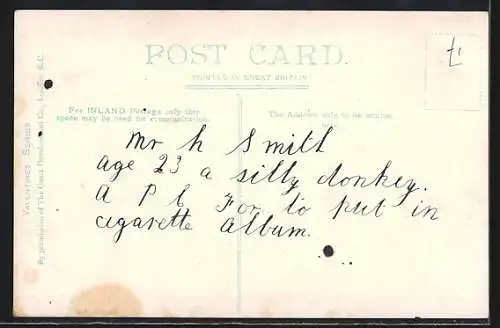 POST CARD.
PRINTED IN GREAT BRITAIN
For INLAND Postage only this
space may be used for communication.
The Address only to be written
here.
£1
Mr h Smith
age 23 a silly donkey.
a P C For to put in
cigarette Album.
VALENTINES SERIES
By permission of The Crown Co., London, E.C.